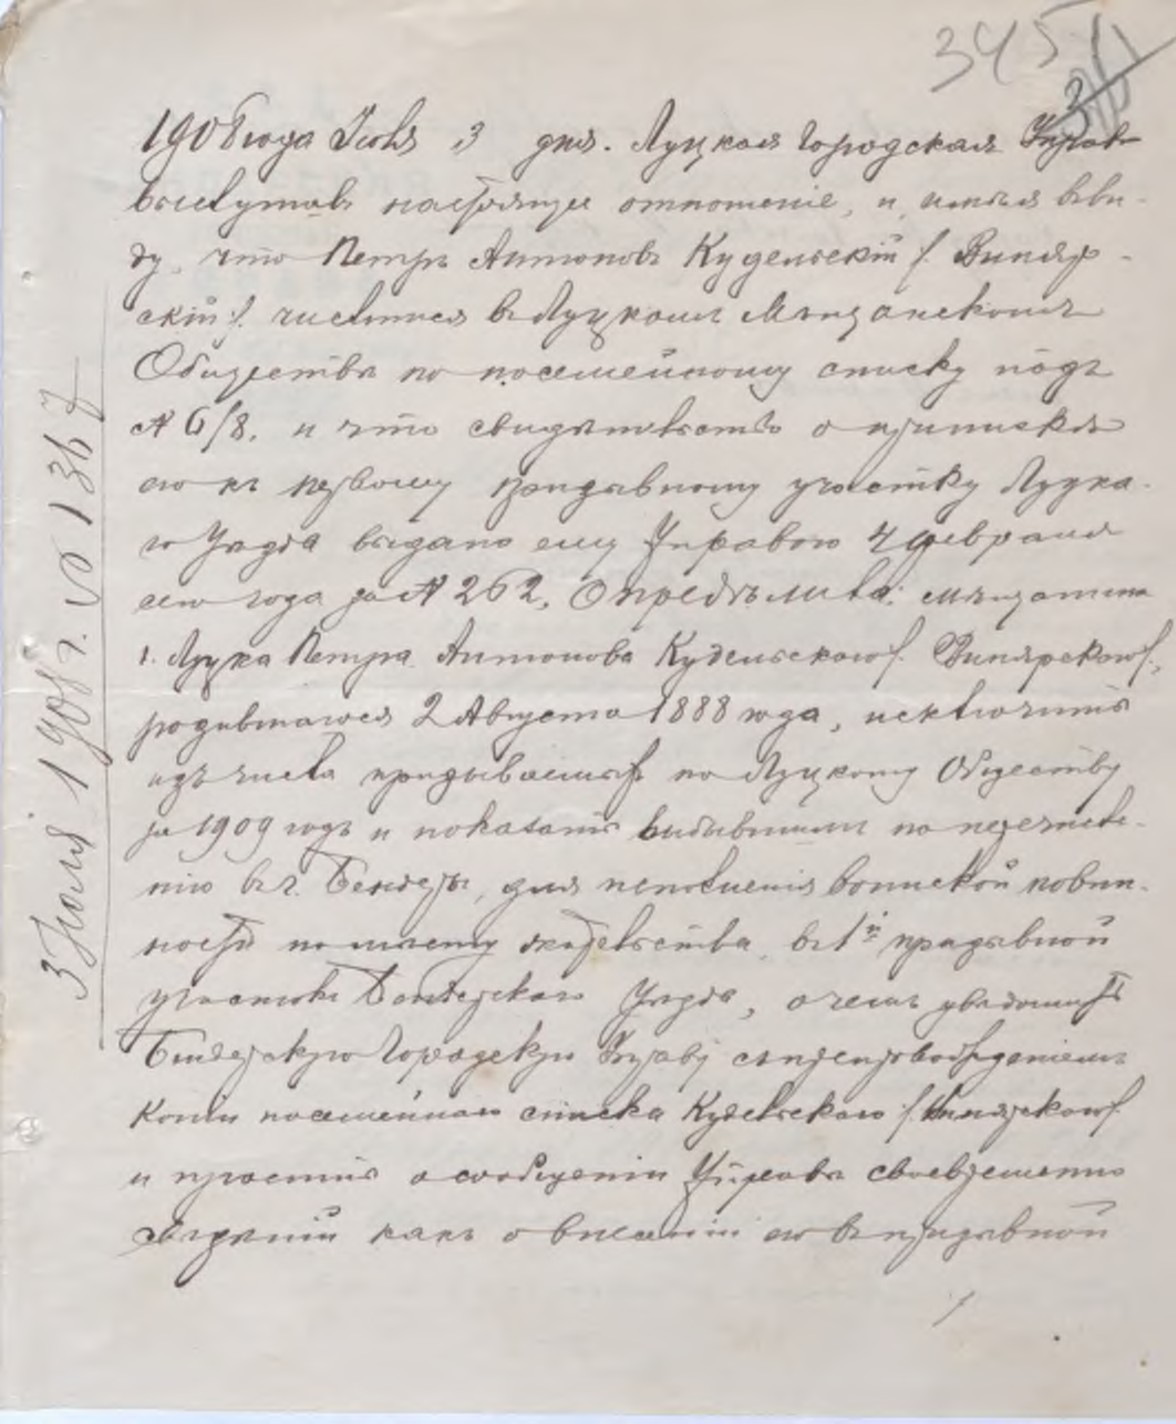 345
1908 года Іюля 3 дня. Луцкая Городская Управа
выслушавъ настоящее отношеніе, и имѣя въ ви-
ду, что Петръ Антоновъ Кудельскій /. Виняр-
скій /. числится въ Луцкомъ Мѣщанскомъ
Обществѣ по посемейному списку подъ
№ 6/8. и что свидѣтельство о припискѣ
его къ первому призывному участку Луцка-
го Уѣзда выдано ему Управою 4 февраля
сего года за № 262, Опредѣлила: мѣщанина
г. Луцка Петра Антонова Кудельскаго /. Винярскаго /.,
родившагося 2 Августа 1888 года, исключить
изъ числа призываемыхъ по Луцкому Обществу
за 1909 годъ и показать выбывшимъ по перечисле-
нію въ г. Бендеры, для исполненія воинской повин-
ности по мѣсту жительства, въ 1й призывной
участокъ Бендерскаго Уѣзда, о чемъ увѣдомить
Бендерскую Городскую Управу съ препровожденіемъ
копіи посемейнаго списка Кудельскаго /. Винярскаго /.
и просить о сообщеніи Управѣ своевременно
свѣдѣній какъ о внесеніи его въ призывной
3 Іюля 1908 г. № 1367